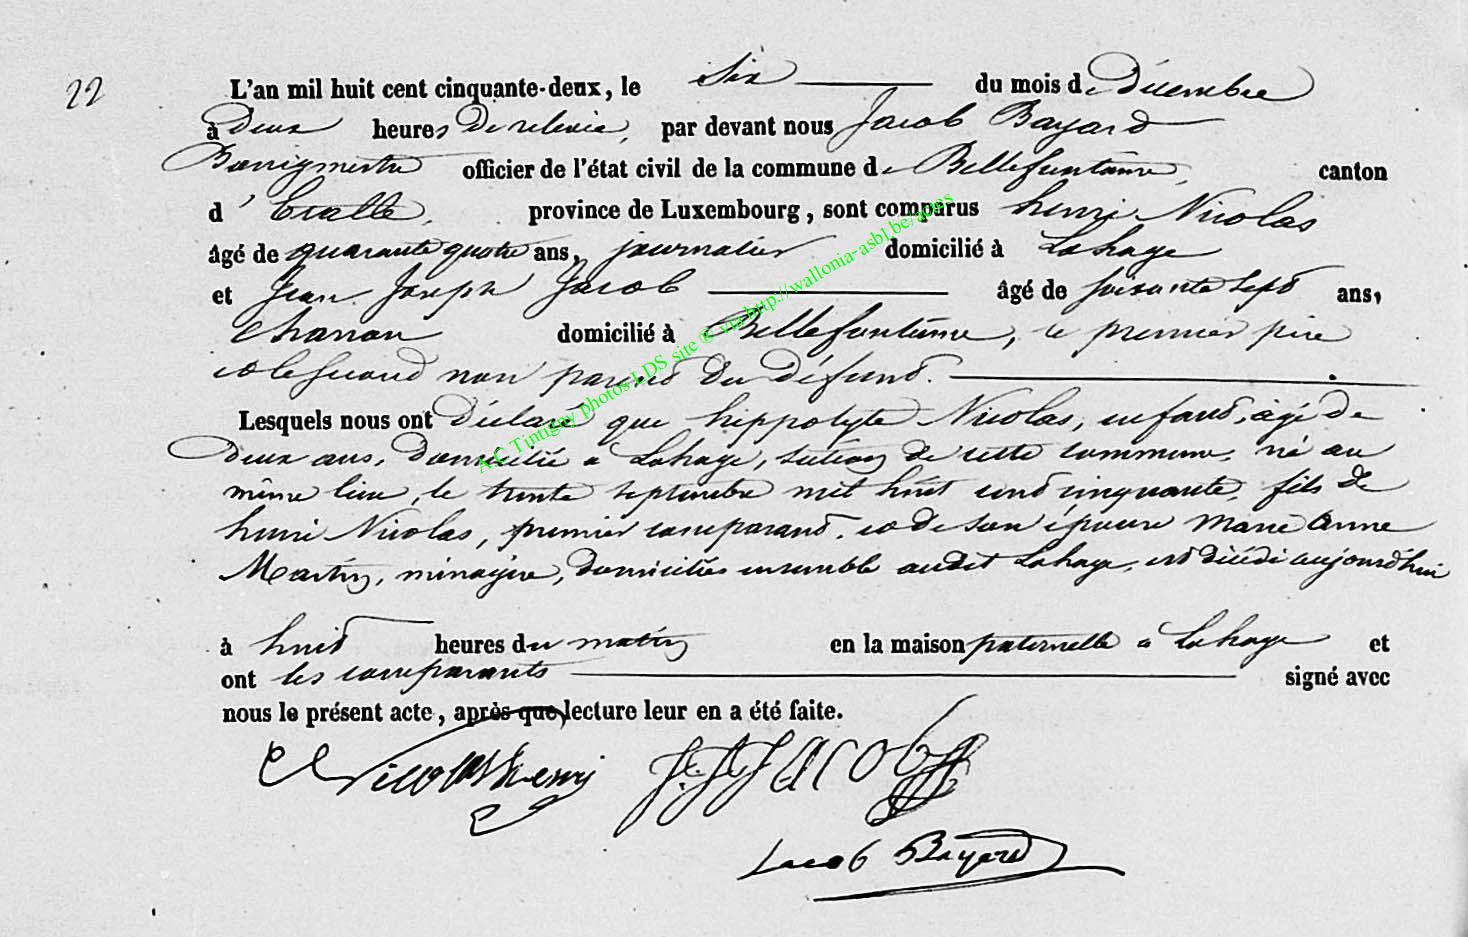 22
L'an mil huit cent cinquante-deux, le Six du mois de Décembre
à Deux heures De relevée, par devant nous Jacob Bayard
Bourgmestre officier de l'état civil de la commune de Bellefontaine, canton
d'Etalle, province de Luxembourg, sont comparus henri Nicolas
âgé de quarante quatre ans, journalier domicilié à Lahage
et Jean Joseph Jacob âgé de soixante sept ans,
charron domicilié à Bellefontaine, le premier père
et le second non parent du Défunt.
Lesquels nous ont Déclaré que hippolyte Nicolas, enfant, âgé de
Deux ans, Domicilié à Lahage, section de cette commune, né au
même lieu, le trente septembre mil huit cent cinquante, fils de
henri Nicolas, premier comparant, et de son épouse Marie Anne
Martin, ménagère, domiciliés ensemble audit Lahage, est décédé aujourd'hui
à huit heures du matin en la maison paternelle à Lahage et
ont les comparants signé avec
nous le présent acte, après que lecture leur en a été faite.
Nicolas henri J. J. Jacob
Jacob Bayard
A.C Tintigny photos LDS site @ via http://wallonia-asbl.be/actes